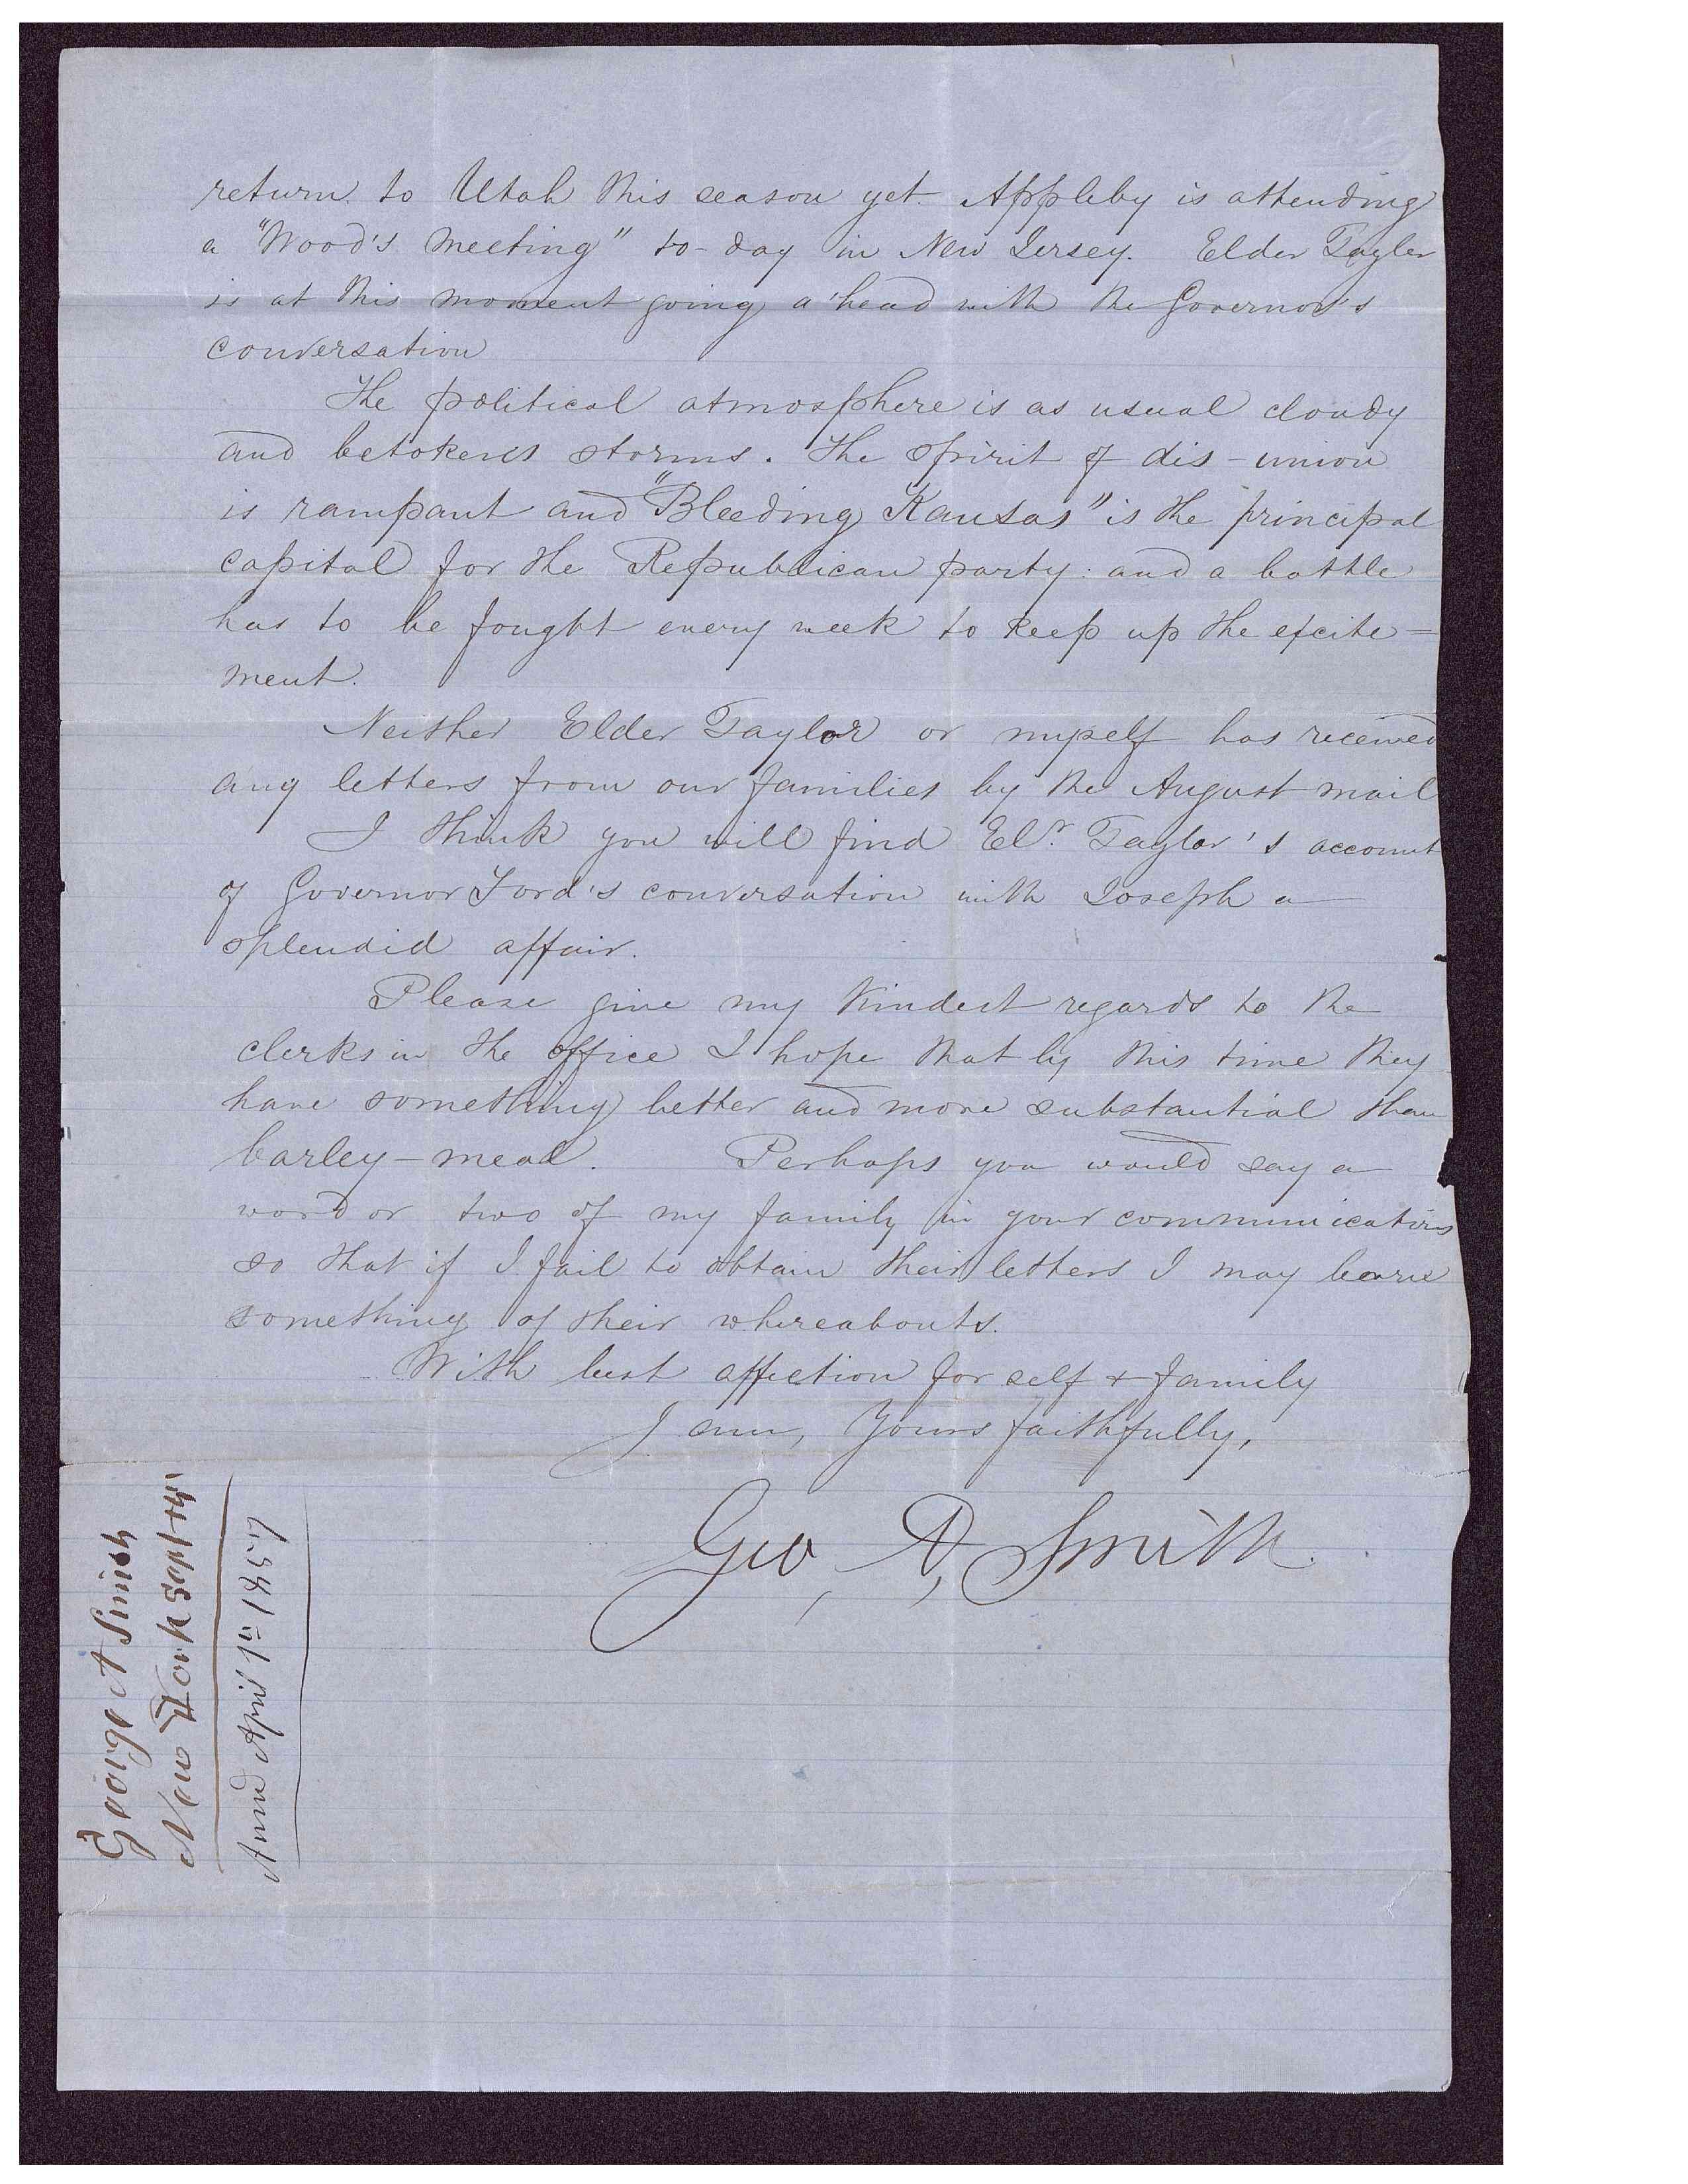 return to Utah this season yet. Appleby is attending
a "Wood's meeting" to-day in New Jersey. Elder Taylor
is at this moment going a'head with the Governor's
conversation
The political atmosphere is as usual cloudy
and betokens storms. The spirit of dis-union
is rampant and "Bleeding Kansas" is the principal
capital for the Republican party: and a battle
has to be fought every week to keep up the excite=
ment.
Neither Elder Taylor or myself has received
any letters from our families by the August mail
I think you will find Elr. Taylor's account
of Governor Ford's conversation with Joseph a
splendid affair.
Please give my kindest regards to the
clerks in the office I hope that by this time they
have something better and more substantial than
barley-meal. Perhaps you would say a
word or two of my family in your communications
so that if I fail to obtain their letters I may learn
something of their whereabouts.
With best affection for self & family
I am, Yours faithfully,
Geo. A. Smith.
George A Smith
New York Sept
April 1st 1857